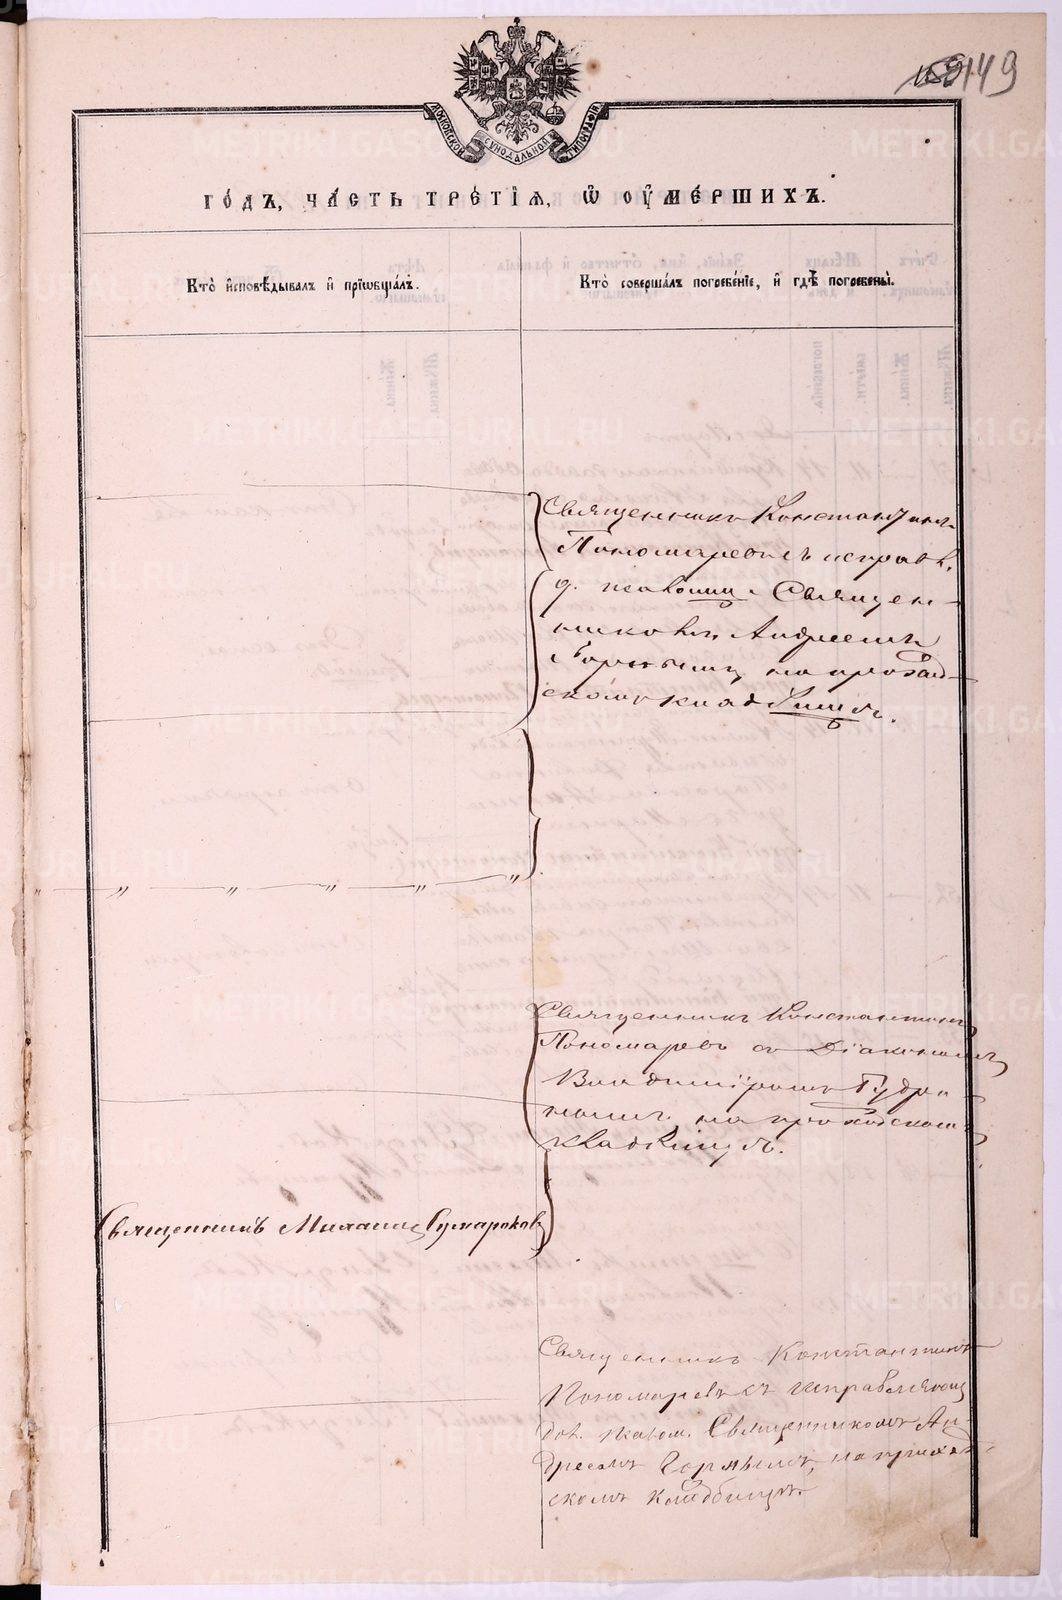 149
МОСКОВСКОЙ СѴНОДАЛЬНОЙ ТИПОГРАФІИ
ГОДЪ, ЧАСТЬ ТРЕТІЯ, Ѿ ОУМЕРШИХЪ.
Кто исповѣдывалъ и пріѡбщалъ.
Кто совершалъ погребеніе, и гдѣ погребены.
Священникъ Константинъ
Пономаревъ съ исправл.
д. псаломщ. Священ-
никовъ Андреемъ
Горныхъ, на приход-
скомъ кладбищѣ.
Священникъ Константинъ
Пономаревъ съ Діакономъ
Владиміромъ
на приходскомъ
кладбищѣ.
Священникъ Михаилъ Сумароковъ
Священникъ Константинъ
Пономаревъ съ исправляющ
дол. псалом. Священникомъ Ан-
дреемъ на приход-
скомъ кладбищѣ.
METRIKI.GASO-URAL.RU